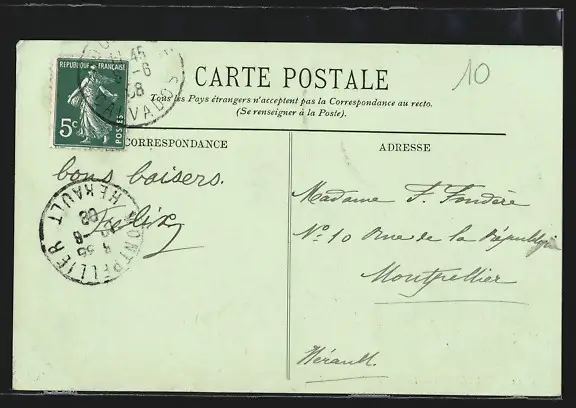 RÉPUBLIQUE FRANÇAISE
5c POSTES
CALVADOS
10
CARTE POSTALE
Tous les Pays étrangers n'acceptent pas la Correspondance au recto.
(Se renseigner à la Poste).
CORRESPONDANCE
ADRESSE
bons baisers.
Felix
MONTPELLIER
HERAULT
Madame F. Fondère
N° 10 Rue de la République
Montpellier
Hérault.